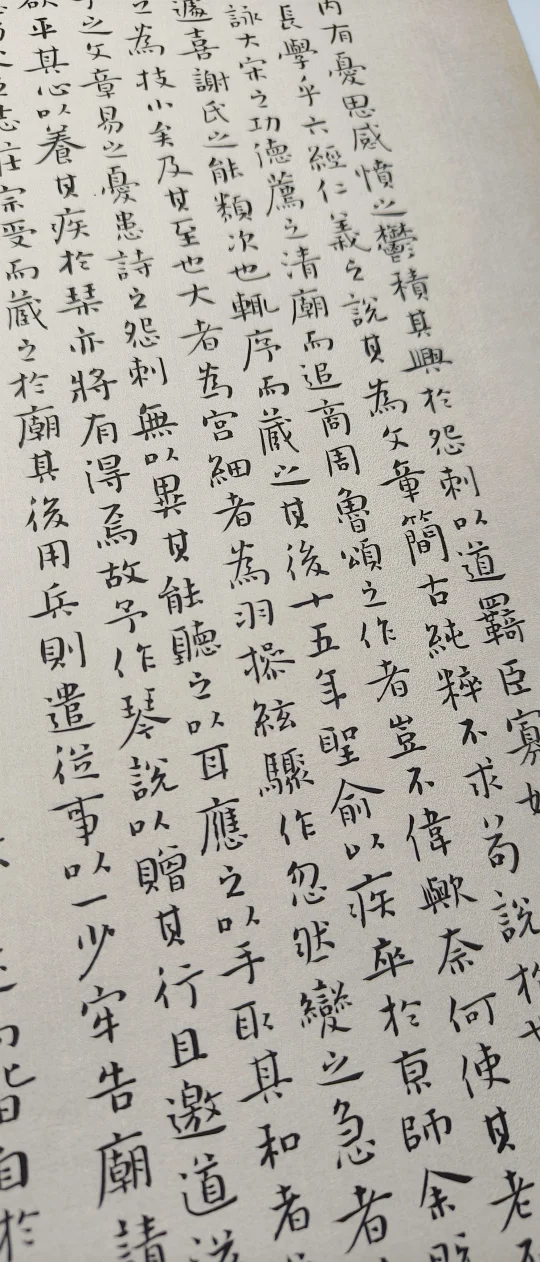 內有憂思感憤之鬱積其興於怨刺以道羇臣寡
長學乎六經仁義之說其為文章簡古純粹不求苟說於
詠大宋之功德薦之清廟而追商周魯頌之作者豈不偉歟奈何使其老不
遽喜謝氏之能類次也輒序而藏之其後十五年聖俞以疾卒於京師余既
之為技小矣及其至也大者為宮細者為羽操絃驟作忽然變之急者
之文章易之憂患詩之怨刺無以異其能聽之以耳應之以手取其和者
欲平其心以養其疾於琴亦將有得焉故予作琴說以贈其行且邀道滋
志莊宗受而藏之於廟其後用兵則遣從事以一少牢告廟請
而皆自於